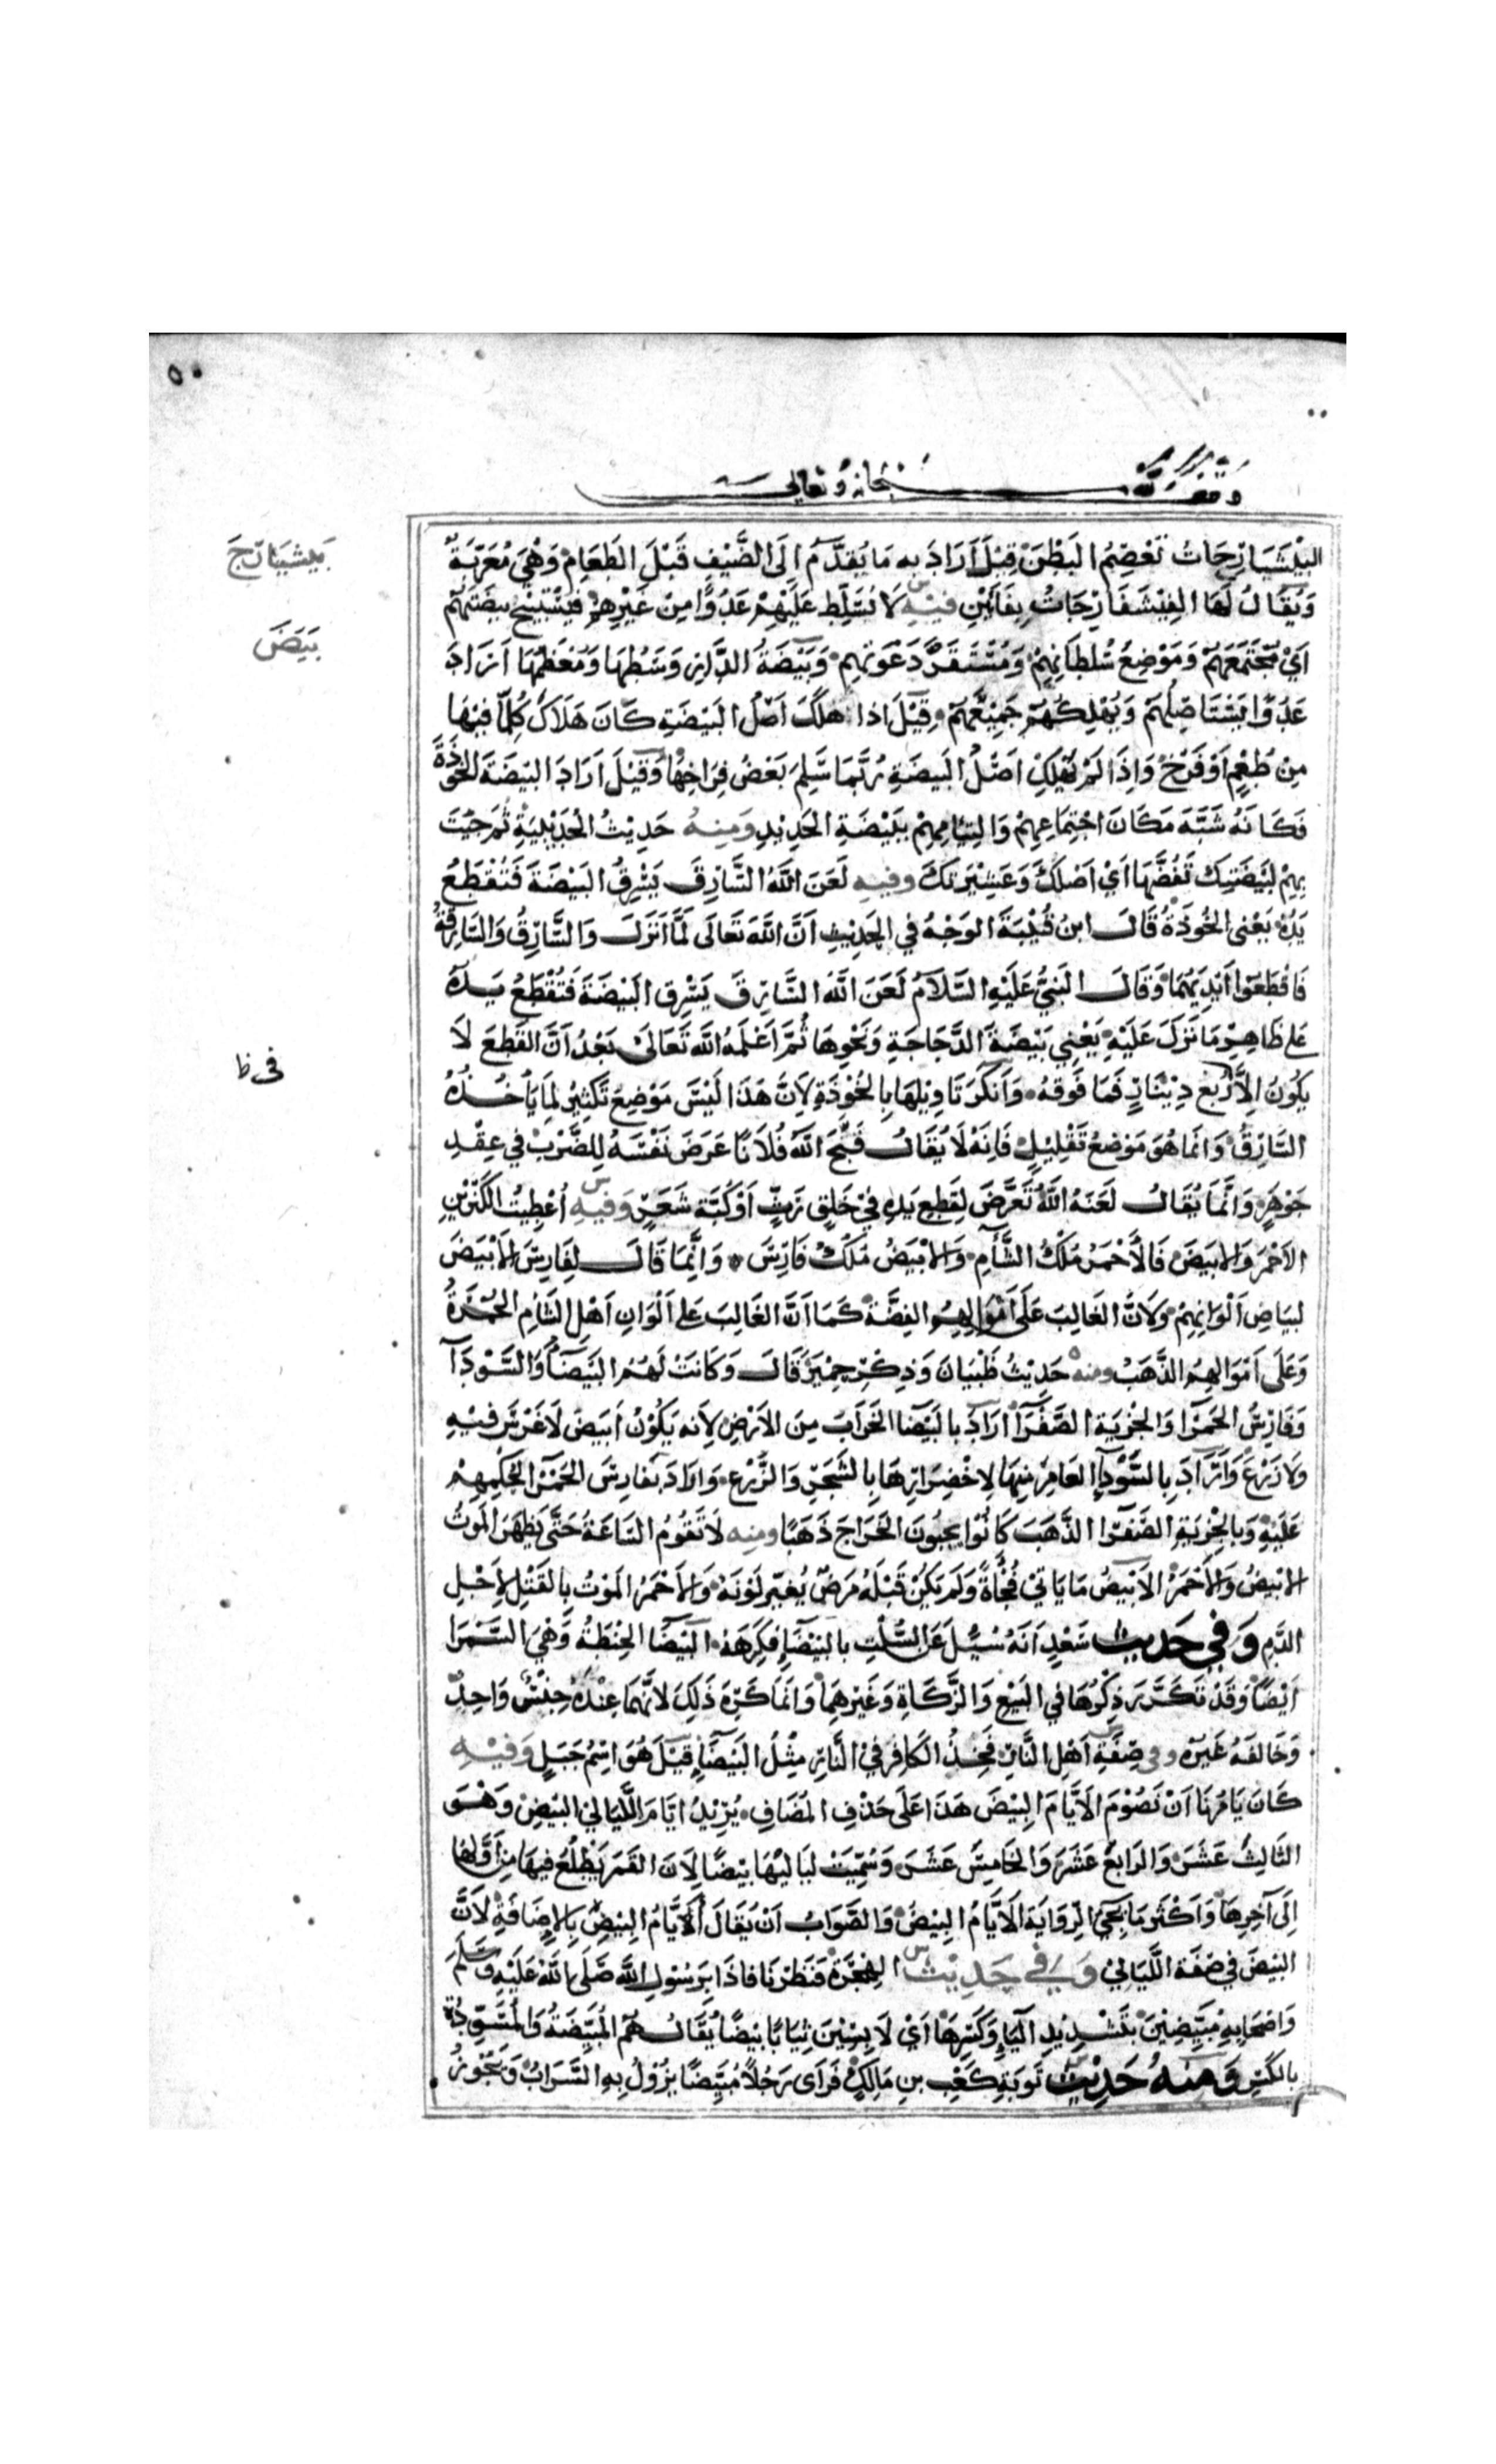 ٥٠
وقف لله سبحانه وتعالى
البَيْشَيَارَجَاتُ تُعْظِمُ البَطْنَ قِيْلَ اَرَادَ به مَا يُقَدَّمُ اِلَى الضَّيْفِ قَبْلَ الطَعَامْ وَهْيَ مُعَرَّبَةٌ
بَيْشَيَارَجَ
وَيُقَالُ لَهَا الفِيْشَفَارَجَاتُ بِفَاَيْنِ فيْهِ لَا تُسَلِّط عَلَيْهِمْ عَدُوًّا مِنْ غَيْرِهِمْ فَيَسْتَبِيْحَ بيضَتَهُمْ
بَيَضَ
اَيْ مُجْتَمَعَهُمْ وَمَوْضِعُ سُلطَانِهِمْ وَمُسْتَقَرَّ دَعْوَتِهِمْ وَبَيْضَةُ الدَّارِ وَسَطُهَا وَمُعْظَمُهَا اَرَادَ
عَدُوًّا يَسْتَاصِلُهُمْ وَيُهْلِكُهُمْ جَمِيْعَهُمْ وقِيْلَ اذا هَلَكَ اَصْلُ البَيْضَةِ كَانَ هَلَاكُ كُلِّ مَا فِيْهَا
مِنْ طُعْمٍ اَوْ فَرْخْ وَاِذَا لَمْ يَهْلِكْ اَصْلُ البَيضَةِ رُبَّمَا سَلِمَ بَعْضُ فِرَاخِهْا وَقِيْلَ اَرَادَ البَيْضَةَ الخُوذَةَ
فَكَاَنَّهُ شَبَّهَ مَكَانَ اجْتِمَاعِهِمْ وَالتِيَامِهِمْ بِبَيْضَةِ الحَدِيْدِ وَمِنهُ حَدِيْثُ الْحُدَيْبِيَةِ ثُمَ جِئْتَ
بِهِمْ لبَيْضَتِكَ تَفُضُّهَا اَيْ اَصْلكَ وَعَشِيْرَتِكَ وفيهِ لَعَنَ اللهُ السَّارِقَ يَسْرِقُ البَيْضَةَ فَتُقْطَعُ
يَدُهُ يَعْنى الخُوذَةَ قَالَ ابنُ قُتَيْبَةَ الوَجْهُ في الحَدِيْثِ اَنَّ اللهَ تَعَالَى لَمَّا اَنْزَلَ وَالسَّارِقُ وَالسَارِقَةُ
فَاقْطَعُوْا اَيْدِيَهُمَا وَقَالَ النَبِيُّ عَلَيْهِ السَّلَامُ لَعَنَ اللهُ السَّارِقَ يَسْرِق البَيْضَةَ فَتُقْطَعُ يَدُهُ
عَلى ظَاهِرِ مَا نَزَلَ عَلَيْهِ يَعْنِي بَيْضَةَ الدَّجَاجَةِ وَنَحْوِهَا ثُمَّ اَعْلَمَهُ اللهُ تَعَالَى بَعْدُ اَنَّ القَطْعَ لَا
في ظ
يَكُوْنُ اِلَّا رُبْع دِيْنَارٍ فَمَا فَوقَهُ وَاَنْكَرَ تَاوِيْلَهَا بِالْخُوْذَةِ لِاَنَّ هَذَا لَيْسَ مَوْضِعَ تَكْثِيْرٍ لِمَا يَاْخُذُهُ
السَّارِقُ وَانَّمَا هُوَ مَوْضِعُ تَقْلِيْلٍ فَاِنَّهُ لَا يُقَالُ قَبَّحَ اللهُ فُلَانًا عَرَضَ نَفْسَهُ لِلضَّرْبِ في عِقْدِ
جَوْهَرٍ وَانَّمَا يُقَالُ لَعَنَهُ اللهُ تَعَرَّضَ لِقَطعِ يَدِهِ فِيْ خَلَقٍ رَثٍّ اَوْ كُبَّةِ شَعَرٍ وَفيهِ اُعْطِيتُ الكَنْزَيْنِ
الاَحْمَرَ وَالابْيَضَ فَالاَحْمَرُ مُلْكُ الشَّاْمِ وَالاَبْيَضُ مُلْكُ فَارِسَ وَاِنَّمَا قَالَ لفَارِسَ الاَبْيَضَ
لبَيَاضِ اَلْوَانِهِمْ وَلاَنَّ الغَالِبَ عَلَى اَمْوَالِهِمُ الفِضَّةُ كَمَا اَنَّ الغَالِبَ عَلى اَلْوَانِ اَهْلِ الشَاْمِ الحُمْرَةُ
وَعَلَى اَمْوَالِهِمُ الذَّهَبُ ومنه حَدِيْثُ ظَبْيَانَ وَذِكْرِ حِمْيَرَ قَالَ وَكَانَتْ لَهُمُ البَيْضَآءُ وَالسَّوْدَآءُ
وَفَارِسُ الحَمْرَا وَالجِزيَةُ الصَّفْرَآ ارَادَ بالبَيْضَا الخَرَابَ مِنَ الاَرْضِ لِاَنه يَكُوْنُ اَبيَضَ لَا غَرْسَ فيْهِ
وَلَا زَرْعَ وَارَادَ بِالسَّوْدَآءِ العَامِرَ مِنْهَا لِاخْضِرَارِهَا بِالشَجَرِ وَالزَّرْعِ وَاَرَادَ بفَارِسَ الحَمْرَا لحُكمِهِمْ
عَلَيْهِ وَبِالجِزْيَةِ الصَّفْرَا الذَّهَبَ كَانُوْا يَجبُونَ الخَرَاجَ ذَهَبًا ومِنه لَا تَقُوْمُ السَاعَةُ حَتَّى يَظهَرَ المَوتُ
الاَبْيَضُ وَالاَحْمَرُ الاَبيَضُ مَا يَاتِيْ فُجْأَةً وَلَم يَكُنْ قَبْلَهُ مَرَضٌ يُغَيّرُ لَوْنَهُ وَالاَحْمَرُ المَوْتُ بالقَتْلِ لِاَجْلِ
الدَّمِ وَفي حَديث سَعْدٍ اَنَهُ سُئِلَ عَنِ السُّلْتِ بالبَيْضَآءِ فكَرِهَهُ البَيْضَا الحِنْطَةُ وَهِيَ السَّمْرَا
اَيْضًا وَقَدْ تَكَرَّرَ ذِكْرُهَا في البَيْعِ وَالزَّكَاةِ وَغَيْرِهِمَا وَانَّمَا كَرِهَ ذَلِكَ لاَنَّهُمَا عِنْدَهُ جِنْسٌ وَاحِدٌ
وَخَالفَهُ غَيْرُهُ وفي صِفَةِ اَهْلِ النَّارِ فَخِذُ الكَافِرِ فِيْ النَّارِ مِثْلُ البَيْضَآءِ قِيْلَ هُوَ اِسْمُ جَبَلٍ وَفيْهِ
كَانَ يَامُرُنَا اَنْ نَصُوْمَ الاَيَّامَ البِيْضَ هَذَا عَلَى حَذفِ المُضَافِ يُرِيْدُ ايّامَ اللَّيَالِيْ البِيْضِ وَهْوَ
الثَّالِثَ عَشَرَ وَالرَابعَ عَشَرَ وَالخَامِسَ عَشَرَ وَسُمِّيَتْ لَيَالِيْهَا بِيْضًا لِاَنَ القَمَرَ يَطْلُعُ فيْهَا مِنْ اَوَّلهَا
اِلَى آخِرِهَا وَاَكْثَرُ مَا تَجِيْءُ الرِّوَايَةُ الاَيَّامُ البِيْضُ وَالصَّوَابُ اَنْ يُقَالَ اَيَّامُ البِيْضِ بالاِضَافَةِ لاَنَّ
البِيْضَ في صِفَةِ اللَّيَالِيْ وَفي حَدِيْث الهِجْرَةِ فنَظَرْنَا فاذَا بِرَسُوْلِ اللهِ صَلَّى اللهُ عَلَيْهِ وَسَلَمَ
وَاصْحَابِهِ مُبَيِّضِيْنَ بتَشْدِيْدِ اليَاءِ وَكَسْرِهَا اَيْ لَابِسِيْنَ ثِيَابًا بِيْضًا يُقَالُ هُمُ المُبَيِّضَةُ وَالْمُسَوِّدَةُ
بالكَسْرِ وَمنهُ حَدِيْث تَوبَةِ كَعْبِ بنِ مَالِكٍ فَرَاَى رَجُلًا مُبَيِّضًا يزُوْلُ بِهِ السَّرَابُ وَيَجُوْزُ